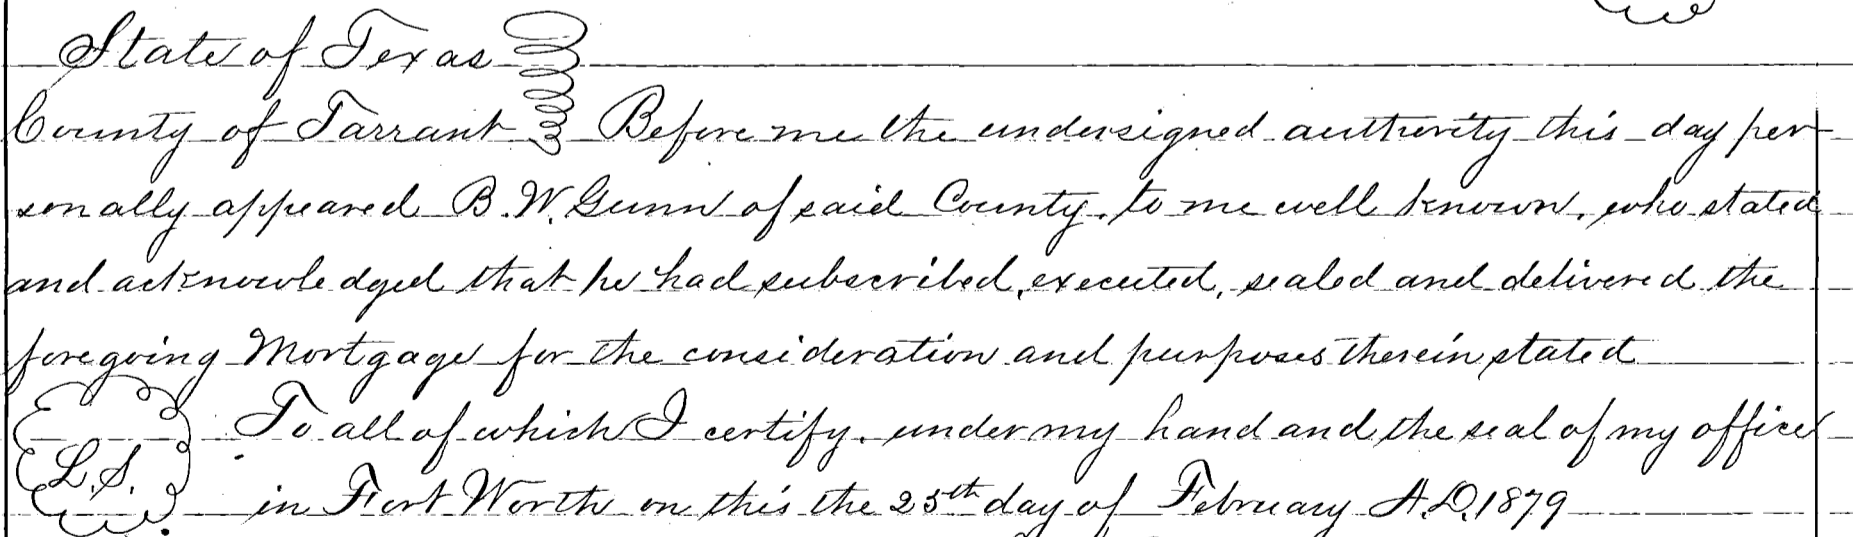 State of Texas
County of Tarrant Before me the undersigned authority this day per-
sonally appeared B. W. Gunn of said County, to me well known, who stated
and acknowledged that he had subscribed, executed, sealed and delivered the
foregoing Mortgage for the consideration and purposes therein stated
To all of which I certify, under my hand and the seal of my office
L.S.
in Fort Worth on this the 25th day of February A.D. 1879